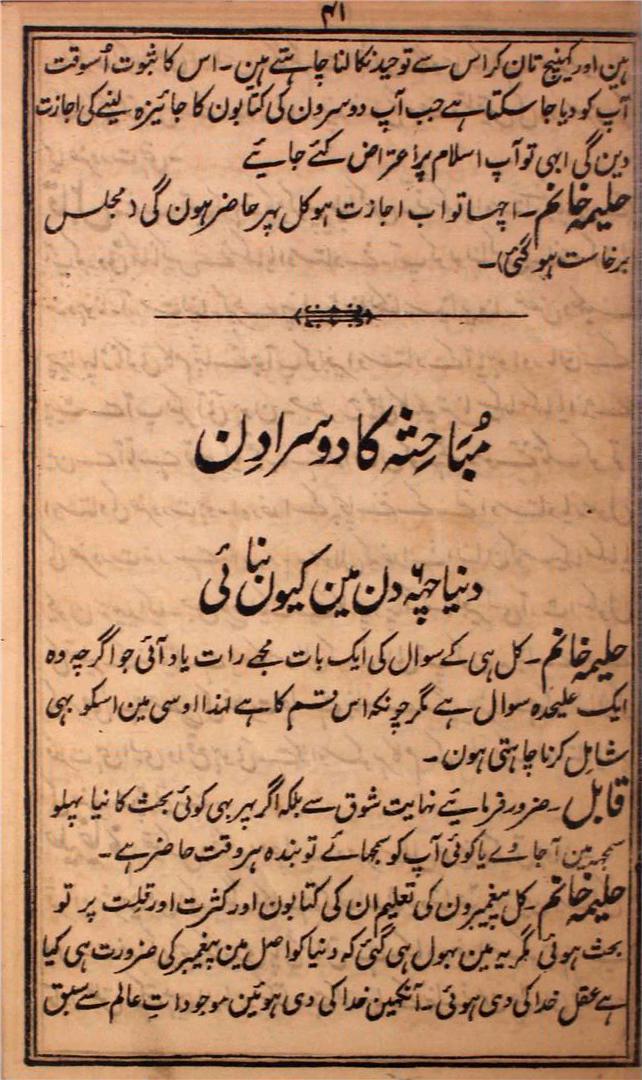 ۴۱
ہین اور کھینچ تان کر اس سے توحید نکالنا چاہتے ہین۔ اس کا ثبوت اُسوقت
آپ کو دیا جا سکتا ہے جب آپ دوسرون کی کتابون کا جائیزہ لینے کی اجازت
دین گی ابہی تو آپ اسلام پر اعتراض کئے جائیے
حلیمہ خانم۔ اچہا تو اب اجازت ہو کل پہر حاضر ہون گی (مجلس
برخاست ہو گئی)۔
مُبَاحِثہ کا دوسرا دِن
دنیا چہہ دن مین کیون بنائی
حلیمہ خانم۔ کل ہی کے سوال کی ایک بات مجہے رات یاد آئی جو اگرچہ وہ
ایک علیحدہ سوال ہے مگر چونکہ اس قسم کا ہے لہذا اوسی مین اسکو بہی
شامل کرنا چاہتی ہون۔
قابل۔ ضرور فرمائیے نہایت شوق سے بلکہ اگر پہر بہی کوئی بحث کا نیا پہلو
سمجہہ مین آجاوے یا کوئی آپ کو سجہائے تو بندہ ہر وقت حاضر ہے۔
حلیمہ خانم۔ کل پیغمبرون کی تعلیم ان کی کتابون اور کثرت اور قلت پر تو
بحث ہوئی مگر یہ مین بہول ہی گئی کہ دنیا کو اصل مین پیغمبر کی ضرورت ہی کیا
ہے عقل خدا کی دی ہوئی۔ آنکہین خدا کی دی ہوئین موجوداتِ عالم سے سبق